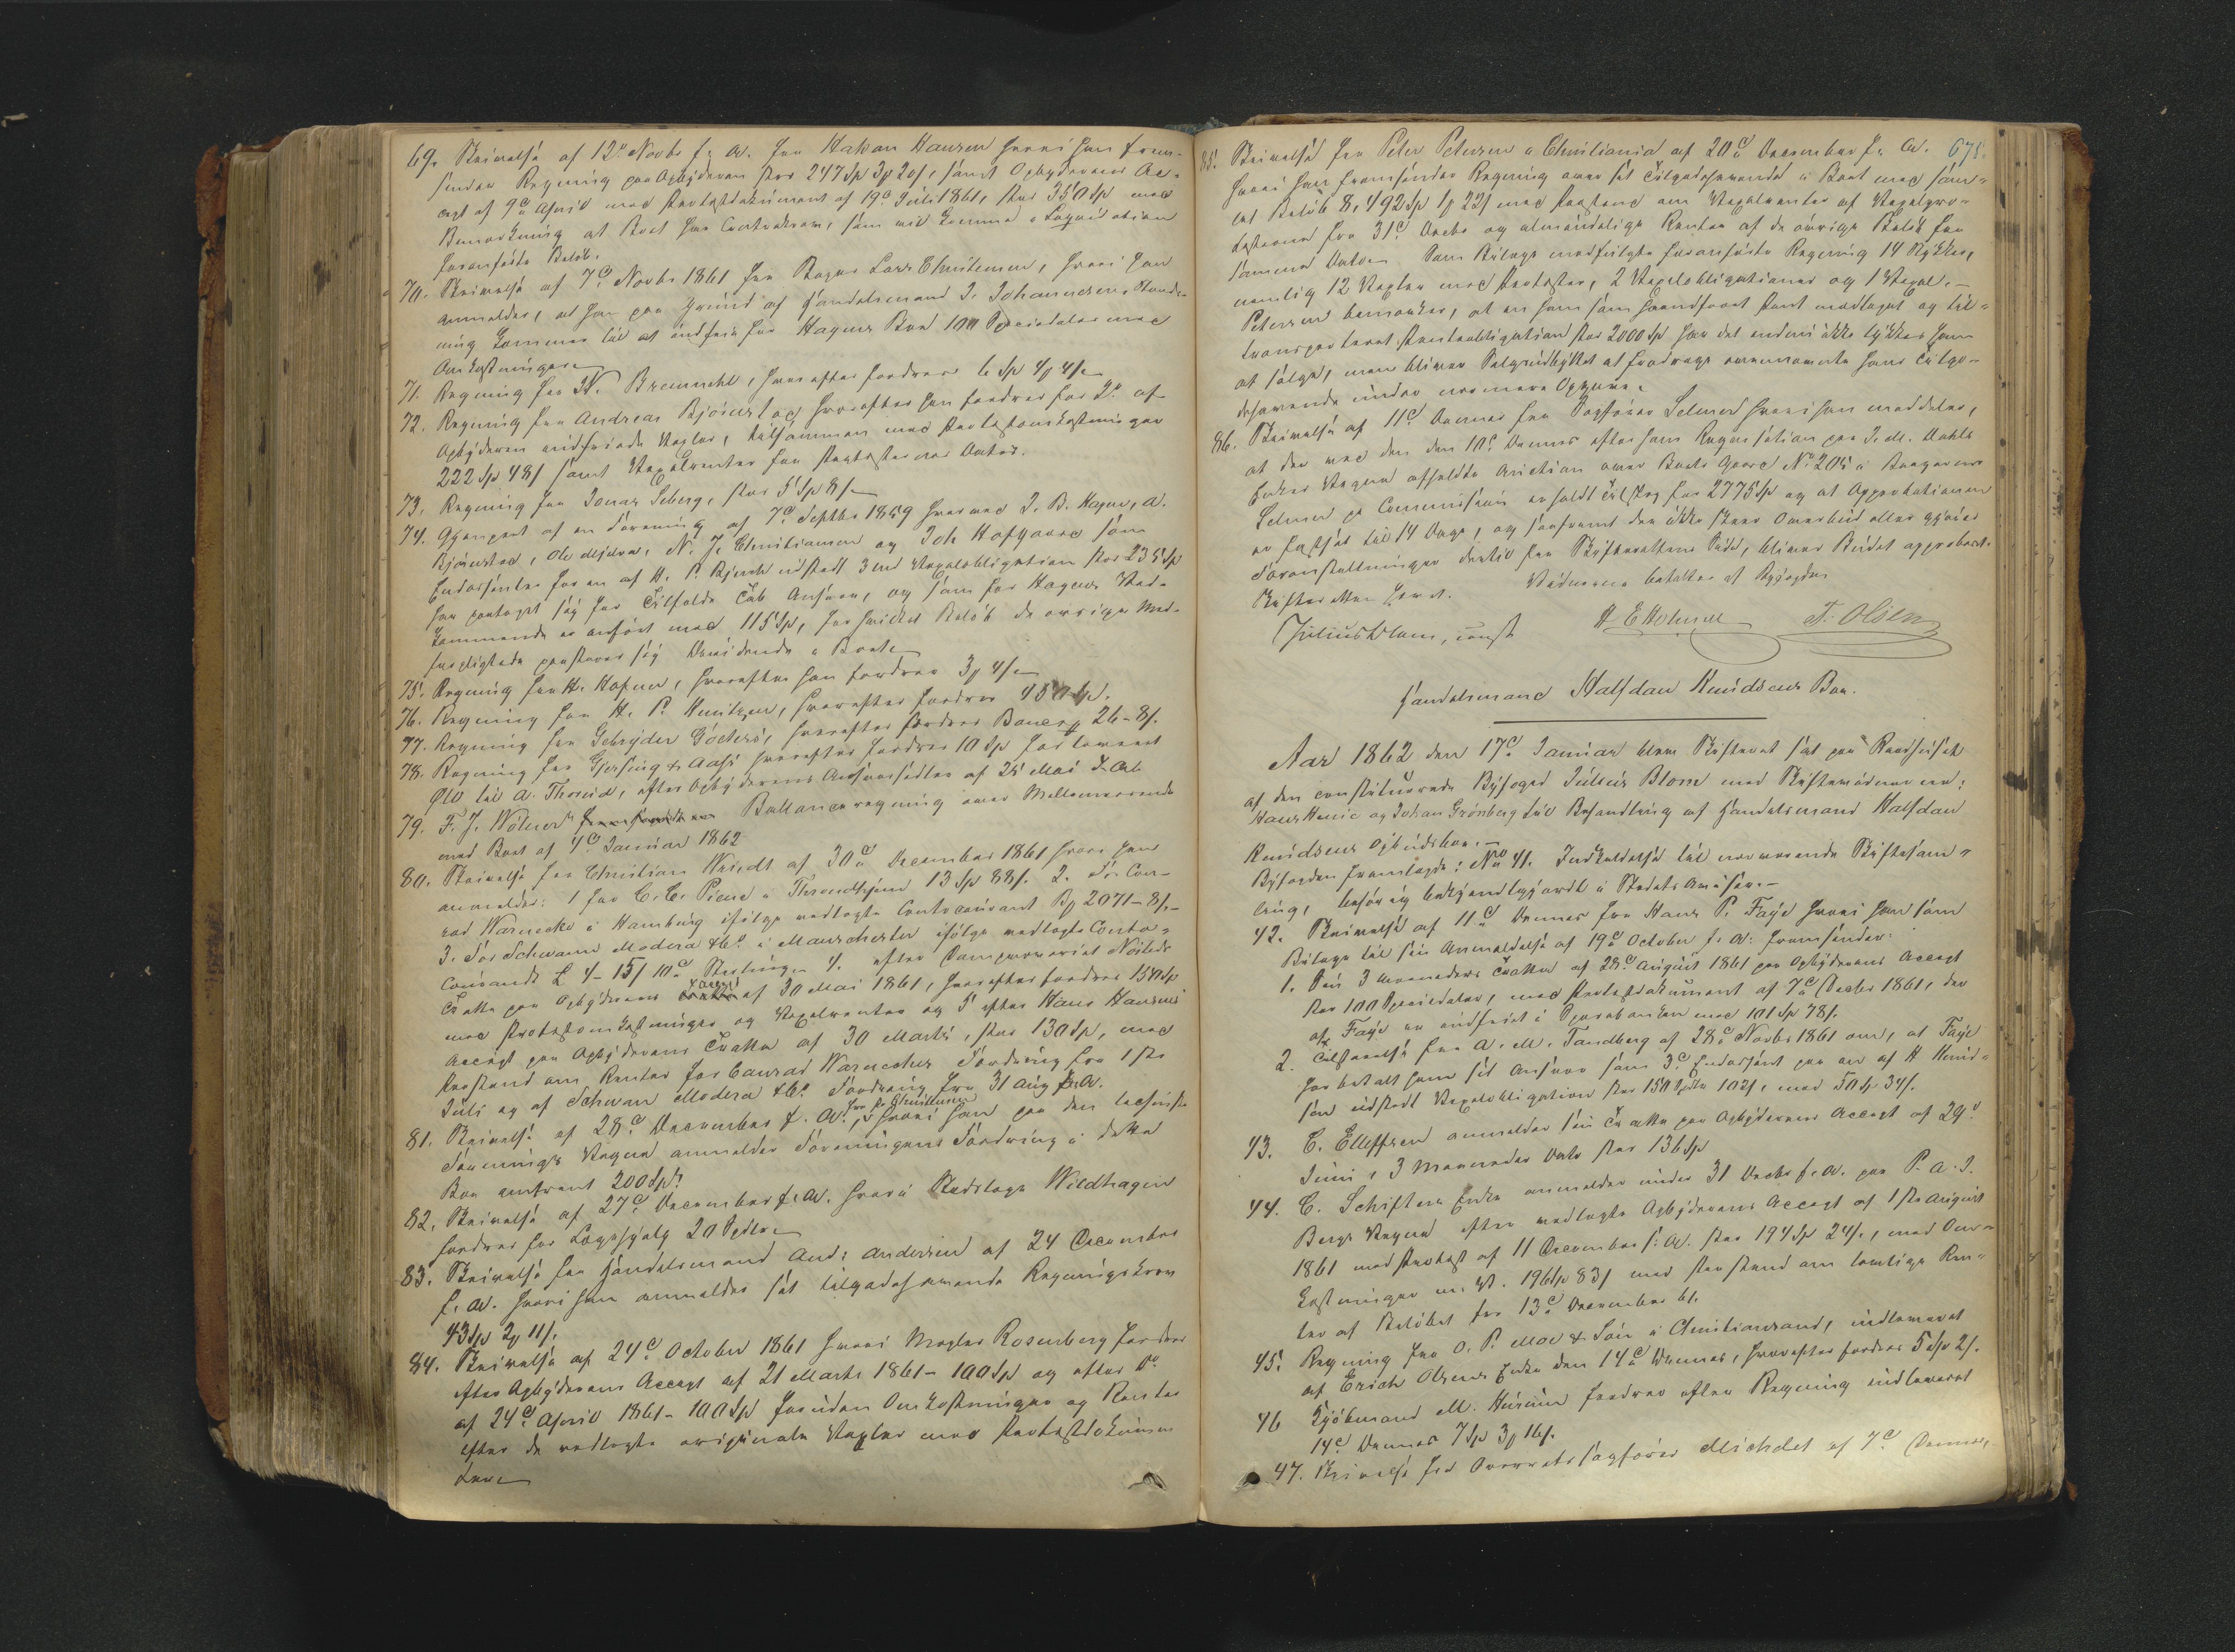 69. Skrivelse af 12te Novbr f. A. fra Hakon Hansen hvori han frem-
sender Regning paa Opbyderen stor 247 Sp 3 20 s, samt Opbyderens Ac-
cept af 9de April med Protestdokument af 19de Juli 1861, stor 350 Sp med
Bemærkning at Boet har Contrakrav, som vil komme i Liqvidation
foranførte Beløb.
70. Skrivelse af 7de Novbr 1861 fra Lars Christensen, hvori han
anmelder, at han paa Grund af Handelsmand J. Johannesens Stands-
ning kommer til at indfri for Hagens Bo 100 Speciedaler med
Omkostninger.
71. Regning fra Bremmehl, hvorefter fordres 6 Sp 4 4 s
72. Regning fra Andreas Bjørnstad hvorefter han fordrer for 2de af
Opbyderen indfriede Vexler, tilsammen med Protestomkostninger
222 Sp 48 s samt Vexelrenter fra Protesternes Datoer.
73. Regning fra Jonas Seberg, stor 5 Sp 8 s
74. Gjenpart af en Forening af 7de Septbr 1859 hvorved J. B. Hagen, A.
Bjørnstad, Ole Mjelva, N. J. Christiansen og Joh Hofgaard som
Endossenter for en af H. P. Bjerck udstedt 3md Vexelobligation stor 235 Sp
har paataget sig for Tilfælde Tab Ansvar, og som for Hagens Ved-
kommende er anført med 115 Sp, for hvilket Beløb de øvrige Med-
forpligtede paastaar sig Dividende i Boet.
75. Regning fra H. Hafner, hvorefter han fordrer 3 4 s
76. Regning fra H. P. Knutzen, hvorefter fordres 450 Sp.
77. Regning fra Gebryder Godchens, hvorefter fordres Banco 26-8 s.
78. Regning fra Gjersing & Aass hvorefter fordres 10 Sp for leveret
Øl til A. Thorud, efter Opbyderens Ansvarsseddel af 25 Mai f. A.
79. F. J. Wolner Ballanceregning over Mellemværende
med Boet af 4de Januar 1862
80. Skrivelse fra Christian Weindt af 30de December 1861 hvori han
anmelder: 1 for C. C. Piene i Throndhjem 13 Sp 88 s. 2. For Con-
rad Warnecke i Hamburg ifølge vedlagte Contocourant B 2071-8 s.
3. For Schwann Modera & Co i Manchester ifølge vedlagte Conto-
Courant £ 4-15 s 10d Sterling. 4. efter Nøsteds
Tratta paa Opbyderens af 30 Mai 1861, hvorefter fordres 150 Sp
med Protestomkostninger og Vexelrenter og 5 efter Hans Hansens
Accept paa Opbyderens Tratta af 30 Marts, stor 130 Sp, med
Paastand om Renter for Conrad Warneckes Fordring fra 1ste
Juli og af Schwan Modera & Co Fordring fra 31 Aug f. A.
81. Skrivelse af 28de December f. A. fra P. Christensen hvori han paa den
Forenings Vegne anmelder Foreningens Fordring i dette
Bo omtrent 200 Sp.
82. Skrivelse af 27de December f. A. hvori Stadslæge Wildhagen
fordrer for Lægehjælp 20 Spdlr.
83. Skrivelse fra Handelsmand And: Andersen af 24 December
f. A. hvori han anmelder sit tilgodehavende Regningskrav
43 Sp 2 11 s.
84. Skrivelse af 24de October 1861 hvori Mægler Rosenberg fordrer
efter Opbyderens Accept af 21 Marts 1861 - 100 Sp og efter Do
af 24de April 1861 - 100 Sp foruden Omkostninger og Renter
efter de vedlagte originale Vexler med Protestdokumen
ter.
675.
85. Skrivelse fra Peter Petersen i Christiania af 20de December f. A.
hvori han fremsender Regning over sit Tilgodehavende i Boet med sam-
let Beløb 8,492 Sp 1 22 s med Paastand om Vexelrenter af Vexelpro-
testerne fra 31te Decbr og almindelige Renter af de øvrige Beløb fra
samme Dato. Som Bilage medfulgte foranførte Regning 14 Stykker,
nemlig 12 Vexler med Protester, 2 Vexelobligationer og 1 Vexel.
Petersen bemærker, at en ham som haandfaaet Pant meddelt og til-
transporteret Panteobligation stor 2000 Sp har det endnu ikke lykkes ham
at sælge, men bliver Salgsudbyttet at fradrage ovennævnte hans Tilgo-
dehavende under nærmere Opgjøre.
86. Skrivelse af 11te Dennes fra Sagfører Selmer hvori han meddeler,
at der ved den den 10de Dennes efter hans Reqvisition paa J. M. Dahls
Enkes Vegne afholdte Auction over Boets Gaard No 205 i
Selmer pr Commission erholdt Tilslag for 2775 Sp og at Approbationen
er fastsat til 14 Dage, og saafremt der ikke skeer Overbud eller gjøres
Forestillinger dertil fra Skifterettens Side, bliver Budet approberet.
Skifteretten hævet. Vidnerne betaltes af Byfogden
Julius Blom, const H E Holmsen T. Olsen
Handelsmand Halfdan Knudsens Boe.
Aar 1862 den 17de Januar blev Skifteret sat paa Raadhuset
af den constituerede Byfoged Julius Blom med Skiftevidnerne:
Hans Henie og Johan Grønberg til Behandling af Handelsmand Halfdan
Knudsens Opbudsboe.
Byfogden fremlagde: No 41. Indkaldelse til nærværende Skiftesam-
ling, behørig bekjendtgjordt i Stedets Aviser.
42. Skrivelse af 11te Dennes fra Hans P. Faye hvori han som
Bilage til sin Anmeldelse af 19de October f. A. fremsender:
1. Sin 3 Maaneders Tratta af 28de August 1861 paa Opbyderens Accept
stor 100 Speciedaler, med Protestdokument af 7de Decbr 1861, der
af Faye er indfriet i Sparebanken med 101 Sp 78 s.
2. Tilstaaelse fra A. M. Tandberg af 28de Novbr 1861 om, at Faye
har betalt ham sit Ansvar som 3de Endossent paa en af H Knud-
sen udstedt Vexelobligation stor 150 Spdlr 102 s, med 50 Sp 34 s.
43. C. Elleffsen anmelder sin Tratta paa Opbyderens Accept af 29de
Juni, 3 Maaneder Dato stor 136 Sp
44. C. Schifters Enke anmelder under 31 Decbr f. A. paa P. A. J.
Bergs Vegne efter vedlagte Opbyderens Accept af 1ste August
1861 med Protest af 11 December f. A. stor 194 Sp 24 s., med Om-
kostninger m. V. 196 Sp 83 s med Paastand om lovlige Ren-
ter af Beløbet fra 13de December 61.
45. Regning fra O. P. Moe & Søn i Christiansand, indleveret
af Erich Olsens Enke den 14de Dennes, hvorefter fordres 5 Sp 2 s.
46 Kjøbmand M. Huseum fordrer efter Regning indleveret
14de Dennes 7 Sp 3 16 s.
47. Skrivelse fra Overretssagfører Michelet af 7de Dennes,